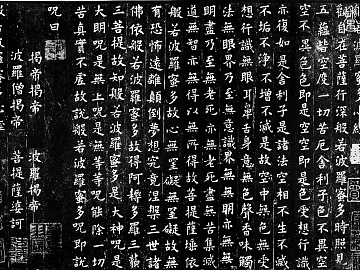 自在菩薩行深般若波羅蜜多時照見
五蘊皆空度一切苦厄舍利子色不異空
空不異色色即是空空即是色受想行識
亦復如是舍利子是諸法空相不生不滅
不垢不淨不增不減是故空中無色無受
想行識無眼耳鼻舌身意無色聲香味觸
法無眼界乃至無意識界無無明亦無無
明盡乃至無老死亦無老死盡無苦集滅
道無智亦無得以無所得故菩提薩埵依
般若波羅蜜多故心無罣礙無罣礙故無
有恐怖遠離顛倒夢想究竟涅槃三世諸
佛依般若波羅蜜多故得阿耨多羅三藐
三菩提故知般若波羅蜜多是大神呪是
大明呪是無上呪是無等等呪能除一切
苦真實不虛故說般若波羅蜜多呪即說
呪曰
揭帝揭帝 波羅揭帝
波羅僧揭帝 菩提薩婆訶